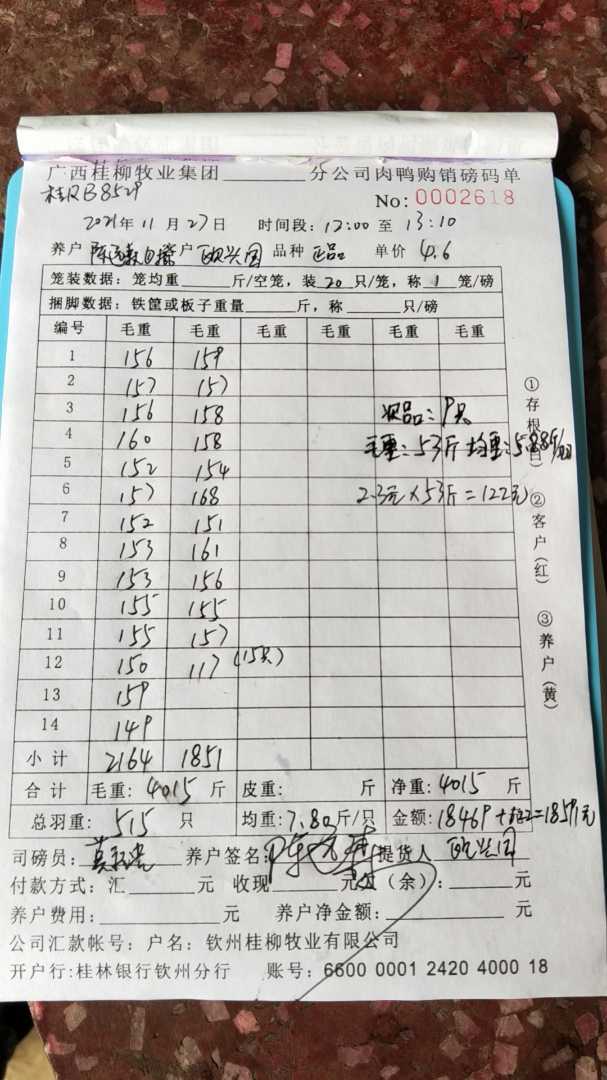 广西桂柳牧业集团______分公司肉鸭购销磅码单
桂R·B8529
No: 0002618
2021年 11 月 27日 时间段: 12:00 至 13:10
养户 客户 欧兴国 品种 正品 单价 4.6
笼装数据: 笼均重______斤/空笼, 装 20 只/笼, 称 1 笼/磅
捆脚数据: 铁筐或板子重量______斤, 称______只/磅
编号 毛重 毛重 毛重 毛重 毛重 毛重
1 156 159
2 157 157
3 156 158 次品: 9只
4 160 158 毛重: 53斤 均重: 5.88斤/只
5 152 154
6 157 168 2.3元×53斤=122元
7 152 151
8 153 161
9 153 156
10 155 155
11 155 157
12 150 117 (15只)
13 159
14 149
小计 2164 1851
合计 毛重: 4015 斤 皮重: 斤 净重: 4015 斤
总羽重: 515 只 均重: 7.80斤/只 金额: 18469+122=18591元
司磅员: 养户签名: 提货人 欧兴国
付款方式: 汇______元 收现______元欠(余): ______元
养户费用: ______元 养户净金额: ______元
公司汇款帐号: 户名: 钦州桂柳牧业有限公司
开户行:桂林银行钦州分行 账号: 6600 0001 2420 4000 18
①存根(白) ②客户(红) ③养户(黄)